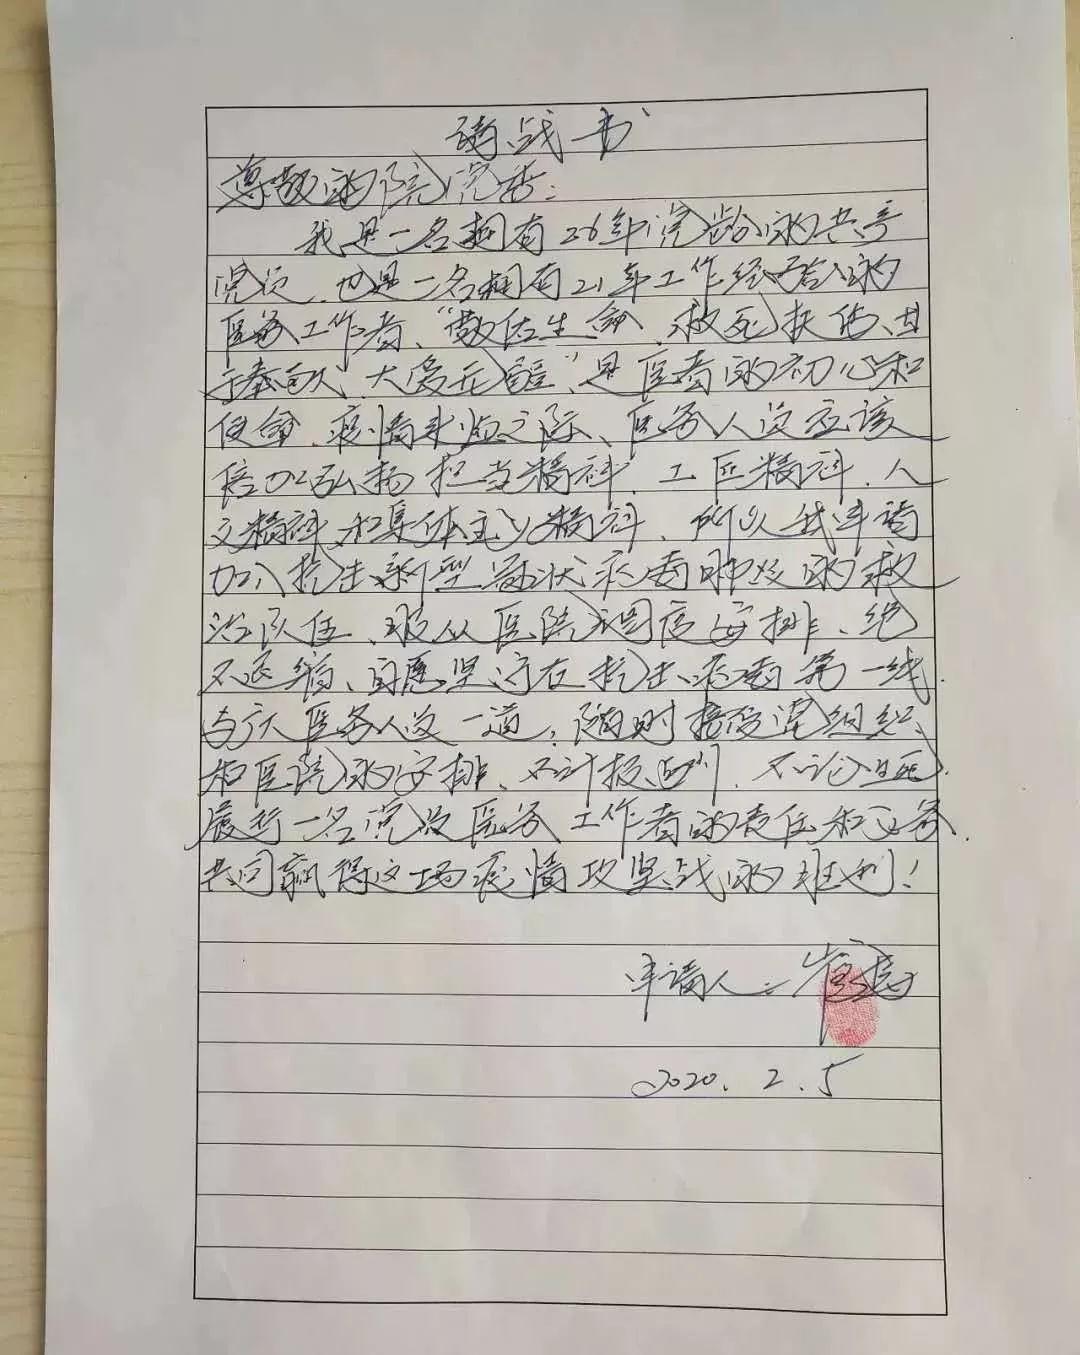 请战书
尊敬的院党委:
我是一名拥有26年党龄的共产
党员,也是一名拥有21年工作经验的
医务工作者、“敬佑生命、救死扶伤、甘
于奉献、大爱无疆”,是医者的初心和
使命、疫情来临之际、医务人员应该
倍加弘扬担当精神、工匠精神、人
文精神和集体主义精神、所以我申请
加入抗击新型冠状病毒肺炎的救
治队伍、服从医院调度安排、绝
不退缩、自愿坚守在抗击病毒第一线
与广大医务人员一道,随时接受党组织
和医院的安排、不计报酬、不论生死
履行一名党员医务工作者的责任和义务
共同赢得这场疫情攻坚战的胜利!
申请人:崔
2020.2.5